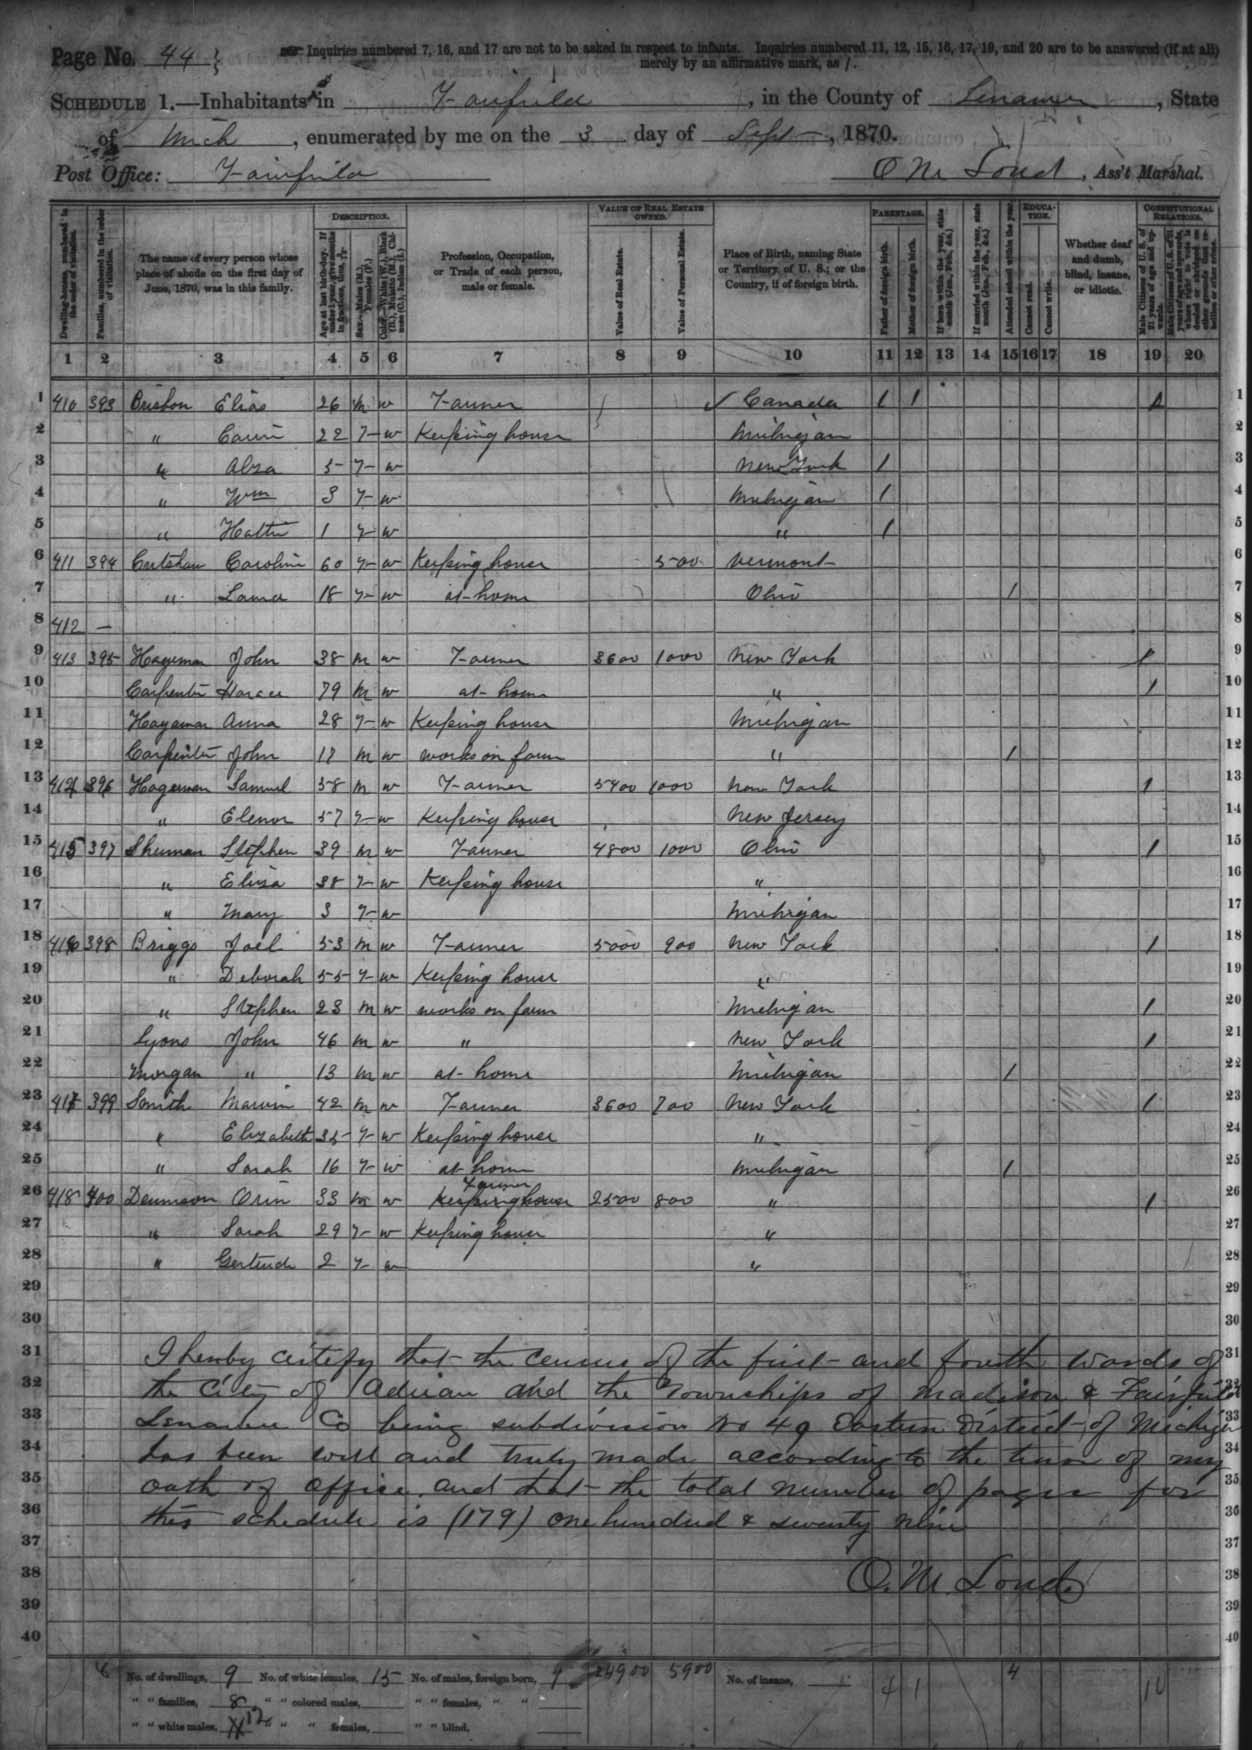 Page No. 44 } Inquiries numbered 7, 16, and 17 are not to be asked in respect to infants. Inquiries numbered 11, 12, 15, 16, 17, 19, and 20 are to be answered (if at all)
merely by an affirmative mark, as /.
SCHEDULE 1.—Inhabitants in Fairfield, in the County of Lenawee, State
of Mich, enumerated by me on the 3 day of Sept, 1870.
Post Office: Fairfield O M Loud, Ass't Marshal.
DESCRIPTION. VALUE OF REAL ESTATE OWNED. PARENTAGE. EDUCATION. CONSTITUTIONAL RELATIONS.
Dwelling-houses, numbered in the order of visitation. Families, numbered in the order of visitation. The name of every person whose place of abode on the first day of June, 1870, was in this family. Profession, Occupation, or Trade of each person, male or female. Value of Real Estate. Value of Personal Estate. Place of Birth, naming State or Territory of U. S.; or the Country, if of foreign birth. Father of foreign birth. Mother of foreign birth. Attended school within the year. Cannot read. Cannot write. Whether deaf and dumb, blind, insane, or idiotic.
1 2 3 4 5 6 7 8 9 10 11 12 13 14 15 16 17 18 19 20
1 410 393 Elias 26 M W Farmer ✓ Canada / / 1 1
2 " 22 F W Keeping house Michigan 2
3 " 5 F W New York / 3
4 " Wm 3 F W Michigan / 4
5 " Hattie 1 F W " / 5
6 411 394 Caroline 60 F W Keeping house 500 Vermont 6
7 " Laura 18 F W at home Ohio / 7
8 412 — 8
9 413 395 Hageman John 38 M W Farmer 3600 1000 New York / 9
10 Carpenter Horace 79 M W at home " / 10
11 Hageman Anna 28 F W Keeping house Michigan 11
12 Carpenter John 17 M W works on farm " / 12
13 414 396 Hageman Samuel 58 M W Farmer 5400 1000 New York / 13
14 " Elenor 57 F W Keeping house New Jersey 14
15 415 397 Shuman Stephen 39 M W Farmer 4800 1000 Ohio / 15
16 " Eliza 38 F W Keeping house " 16
17 " Mary 3 F W Michigan 17
18 416 398 Briggs Joel 53 M W Farmer 5000 900 New York / 18
19 " Deborah 55 F W Keeping house " 19
20 " Stephen 23 M W works on farm Michigan / 20
21 Lyons John 46 M W " New York / 21
22 Morgan " 13 M W at home Michigan / 22
23 417 399 Smith Marvin 42 M W Farmer 3600 700 New York / 23
24 " Elizabeth 35 F W Keeping house " 24
25 " Sarah 16 F W at home Michigan / 25
26 418 400 Dennison Orin 33 M W Keeping house Farmer 2500 800 " / 26
27 " Sarah 29 F W Keeping house " 27
28 " Gertrude 2 F W " 28
29 29
30 30
31 I hereby certify that the census of the first and fourth wards of 31
32 the City of Adrian and the Townships of Madison & Fairfield 32
33 Lenawee Co being subdivision No 49 Eastern District of Michigan 33
34 has been well and truly made according to the tenor of my 34
35 oath of office. and that the total number of pages for 35
36 this schedule is (179) one hundred & seventy nine 36
37 37
38 O. M. Loud 38
39 39
40 40
No. of dwellings, 9 No. of white females, 15 No. of males, foreign born, 24900 5900 No. of insane, 4 1 4 10
" " families, 8 " " colored males, " " females, " "
" " white males, 12 " " females, " " blind,